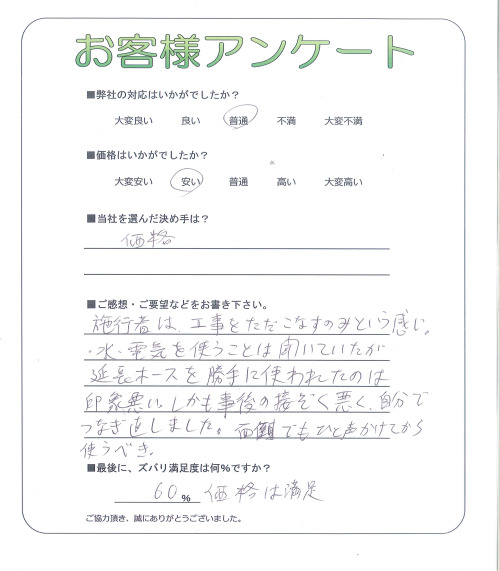 お客様アンケート
■弊社の対応はいかがでしたか？
大変良い 良い 普通 不満 大変不満
■価格はいかがでしたか？
大変安い 安い 普通 高い 大変高い
■当社を選んだ決め手は？
価格
■ご感想・ご要望などをお書き下さい。
施行者は、工事をただこなすのみという感じ。
・水・電気を使うことは聞いていたが
延長ホースを勝手に使われたのは
印象悪い。しかも事後の接ぞく悪く、自分で
つなぎ直しました。面倒でもひと声かけてから
使うべき。
■最後に、ズバリ満足度は何%ですか？
60% 価格は満足
ご協力頂き、誠にありがとうございました。